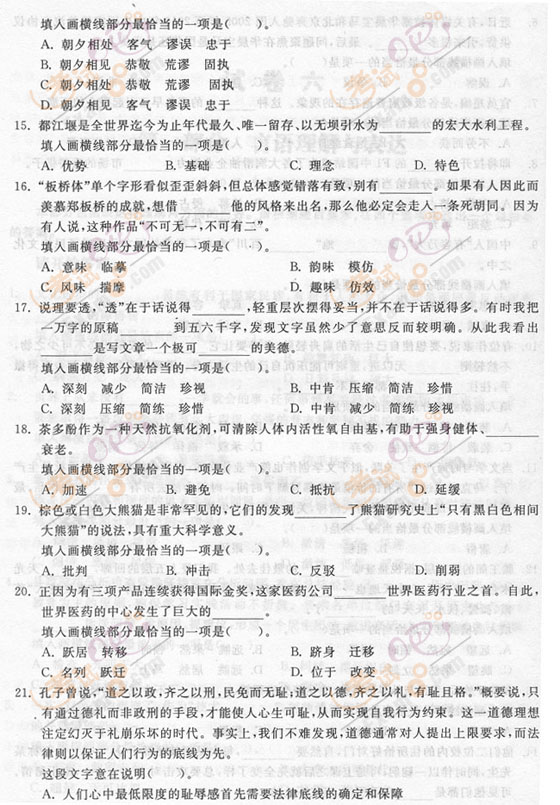 填入画横线部分最恰当的一项是(　　)。
A．朝夕相处　客气　谬误　忠于
B．朝夕相见　恭敬　荒谬　固执
C．朝夕相处　恭敬　荒谬　固执
D．朝夕相见　客气　谬误　忠于
15．都江堰是全世界迄今为止年代最久、唯一留存、以无坝引水为______的宏大水利工程。
填入画横线部分最恰当的一项是(　　)。
A．优势　B．基础　C．理念　D．特色
16．“板桥体”单个字形看似歪歪斜斜，但总体感觉错落有致，别有______。如果有人因此而
羡慕郑板桥的成就，想借______他的风格来出名，那么他必定会走人一条死胡同。因为
有人说，这种作品“不可无一，不可有二”。
填入画横线部分最恰当的一项是(　　)。
A．意味　临摹　B．韵味　模仿
C．风味　揣摩　D．趣味　仿效
17．说理要透，“透”在于话说得______，轻重层次摆得妥当，并不在于话说得多。有时我把
一万字的原稿______到五六千字，发现文字虽然少了意思反而较明确。从此我看出
______是写文章一个极可______的美德。
填入画横线部分最恰当的一项是(　　)。
A．深刻　减少　简洁　珍视　B．中肯　压缩　简洁　珍惜
C．深刻　压缩　简练　珍惜　D．中肯　减少　简洁　珍视
18．茶多酚作为一种天然抗氧化剂，可清除人体内活性氧自由基，有助于强身健体、______
衰老。
填入画横线部分最恰当的一项是(　　)。
A．加速　B．避免　C．抵抗　D．延缓
19．棕色或白色大熊猫是非常罕见的，它们的发现______了熊猫研究史上“只有黑白色相间
大熊猫”的说法，具有重大科学意义。
填入画横线部分最恰当的一项是(　　)。
A．批判　B．冲击　C．反驳　D．削弱
20．正因为有三项产品连续获得国际金奖，这家医药公司______世界医药行业之首。自此，
世界医药的中心发生了巨大的______。
填入画横线部分最恰当的一项是(　　)。
A．跃居　转移　B．跻身　迁移
C．名列　跃迁　D．位于　改变
21．孔子曾说，“道之以政，齐之以刑，民免而无耻；道之以德，齐之以礼，有耻且格。”概要说，只
有通过德礼而非政刑的手段，才能使人心生可耻，从而实现自我行为约束。这一道德理想
注定幻灭于礼崩乐坏的时代。事实上，我们不难发现，道德通常对人提出上限要求，而法
律则以保证人们行为的底线为先。
这段文字意在说明(　　)。
A．人们心中最低限度的耻辱感首先需要法律底线的确定和保障